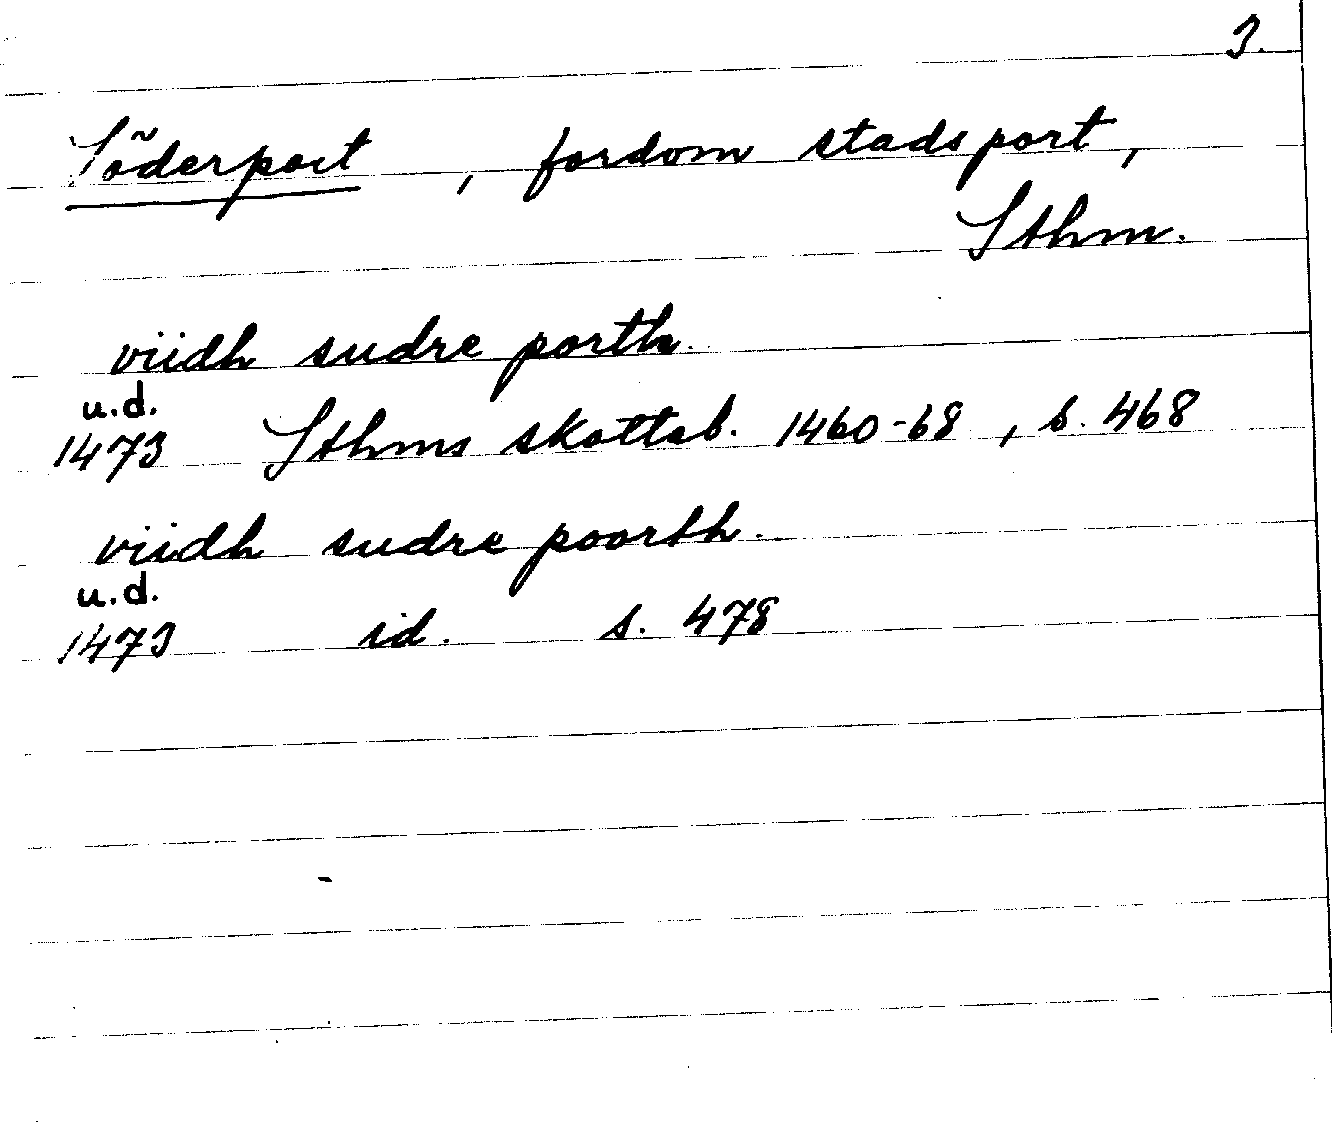 3.
Söderport, fordom stadsport,
Sthm.
viidh sudre porth.
u.d.
1473 Sthms skotteb. 1460-68, s. 468
viidh sudre poorth.
u.d.
1473 id. s. 478